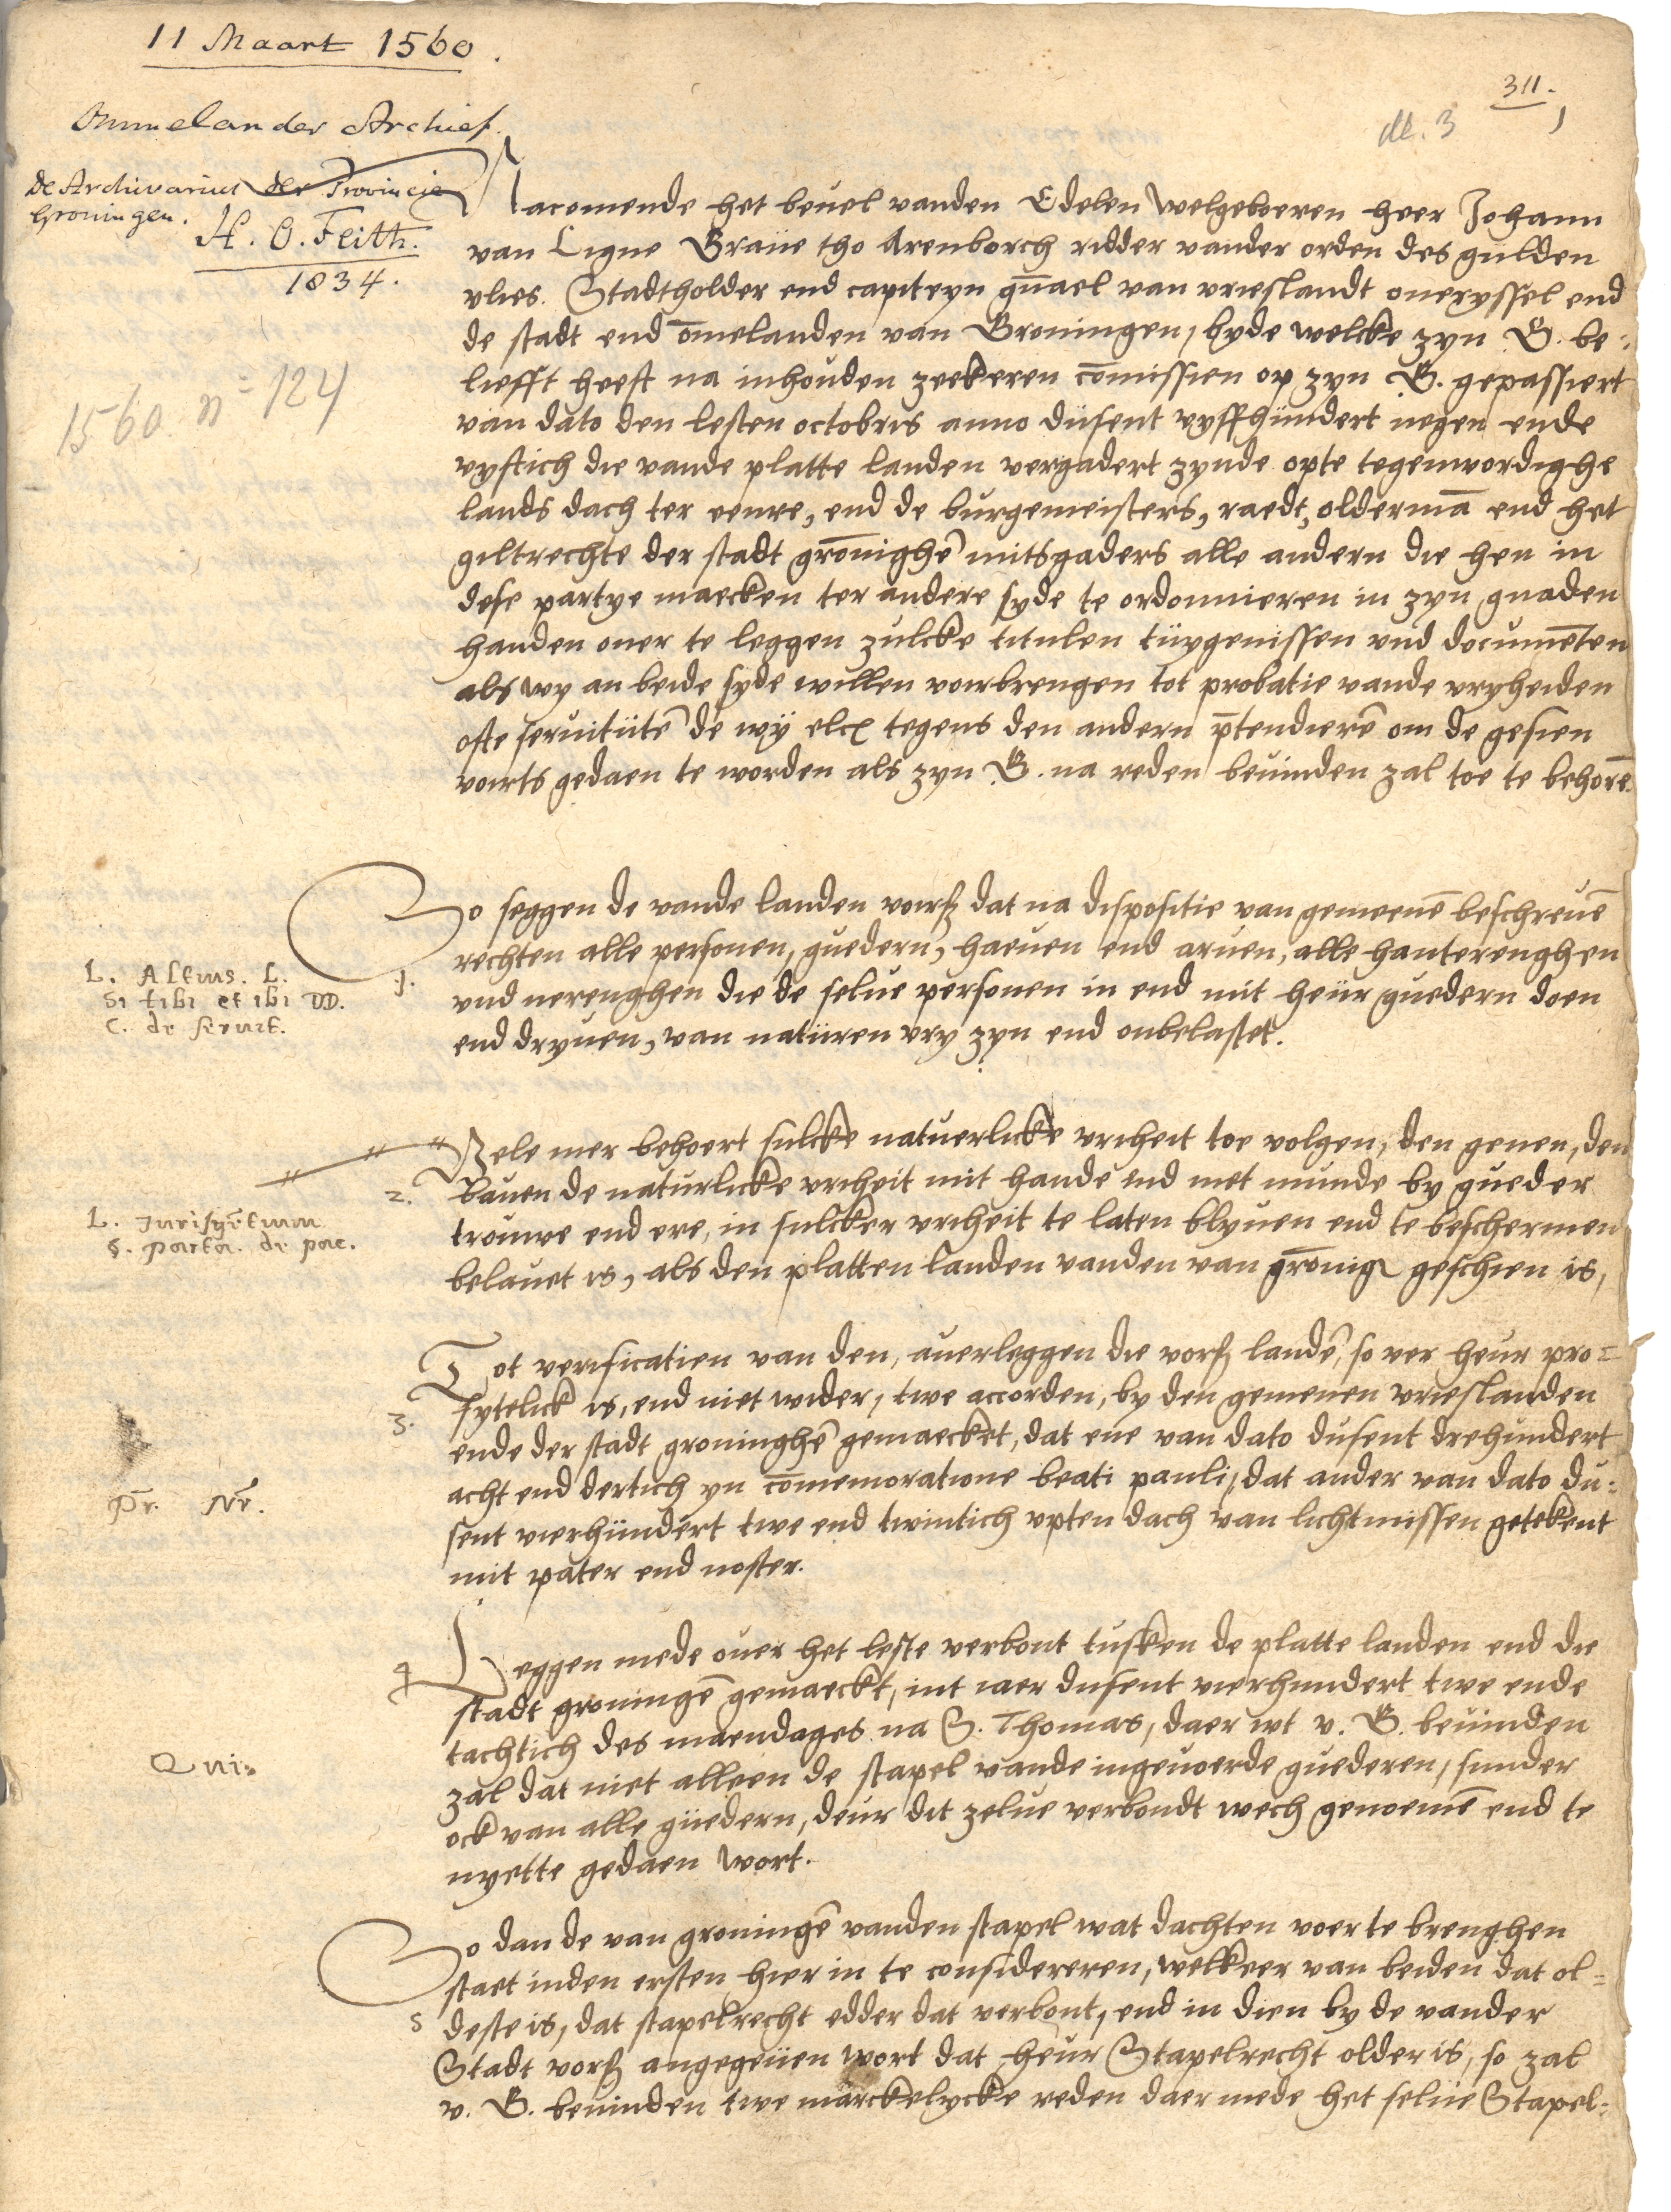 11 Maart 1560.
311.
dl. 3
1
Ommelander Archief.
de Archivarius der Provincie
Groningen.
H. O. Feith.
1834.
1560 nº 124
Nacomende het beuel vanden Edelen welgeboeren heer Johann
van Ligne Graue tho Arenborch ridder vander orden des gulden
vlies. Stadtholder end capiteyn gn̄ael van vrieslandt oueryssel end
de stadt end om̄elanden van Groningen, byde welcke zyn G. be-
liefft heeft na inhouden zeekeren com̄issien op zyn G. gepassiert
van dato den lesten octobris anno dusent vyffhundert negen ende
vyftich die vande platte landen vergadert zynde opte tegenwordighe
lands dach ter eenre, end de burgemeisters, raedt, oldermā end het
giltrechte der stadt gronighē mitsgaders alle andern die hen in
dese partye maecken ter andere syde te ordonnieren in zyn gnaden
handen ouer te leggen zulcke titulen tuygenissen vnd documēten
als wy an beide syde willen voirbrengen tot probatie vande vryheiden
ofte seruitutē de wy elcx tegens den andern p̄tendierē om de gesien
voirts gedaen te worden als zyn G. na reden beuinden zal toe te behorē.
So seggen de vande landen voirß dat na dispositie van gemeenē beschreuē
rechten alle personen, guedern, haeuen end aruen, alle hanterenghen
vnd nerenghen die de selue personen in end mit heur guedern doen
end dryuen, van naturen vry zyn end onbelastet.
1.
L. Altius. L.
Si tibi et ibi DD.
C. de seruit.
Vele mer behoert sulcke natuerlicke vriheit toe volgen, den genen, den
bauen de naturlicke vriheit mit hande end met munde by gueder
trouwe end ere, in sulcker vriheit te laten blyuen end te beschermen
belauet is, als den platten landen vanden van gronig geschien is,
2.
L. Jurisgētium
§. pactor. de pac.
Tot verificatien van den, auerleggen die vorß landē, so ver heur pro-
fytelick is, end niet wider, twe accorden, by den gemenen vrieslanden
ende der stadt groninghē gemaecket, dat ene van dato dusent drehundert
acht end dertich yn com̄emoratione beati pauli, dat ander van dato du-
sent vierhundert twe end twintich vpten dach van lichtmissen getekent
mit pater end noster.
3.
Pr. Nr.
Leggen mede ouer het leste verbont tusken de platte landen end die
stadt groningē gemaeckt, int iaer dusent vierhundert twe ende
tachtich des maendages na S. Thomas, daer wt v. G. beuinden
zal dat niet alleen de stapel vande ingeuoerde guederen, sunder
ock van alle guedern, deur dit zelue verbondt wech genoemē end te
nyette gedaen wort.
4
Qui
So dan de van groningē vanden stapel wat dachten voer te brenghen
staet inden ersten hier in te considereren, welkeer van beiden dat ol-
deste is, dat stapelrecht edder dat verbont, end in dien by de vander
Stadt vorß angegeuen wort dat heur Stapelrecht older is, so zal
v. G. beuinden twe marckelycke reden daer mede het selue Stapel-
5